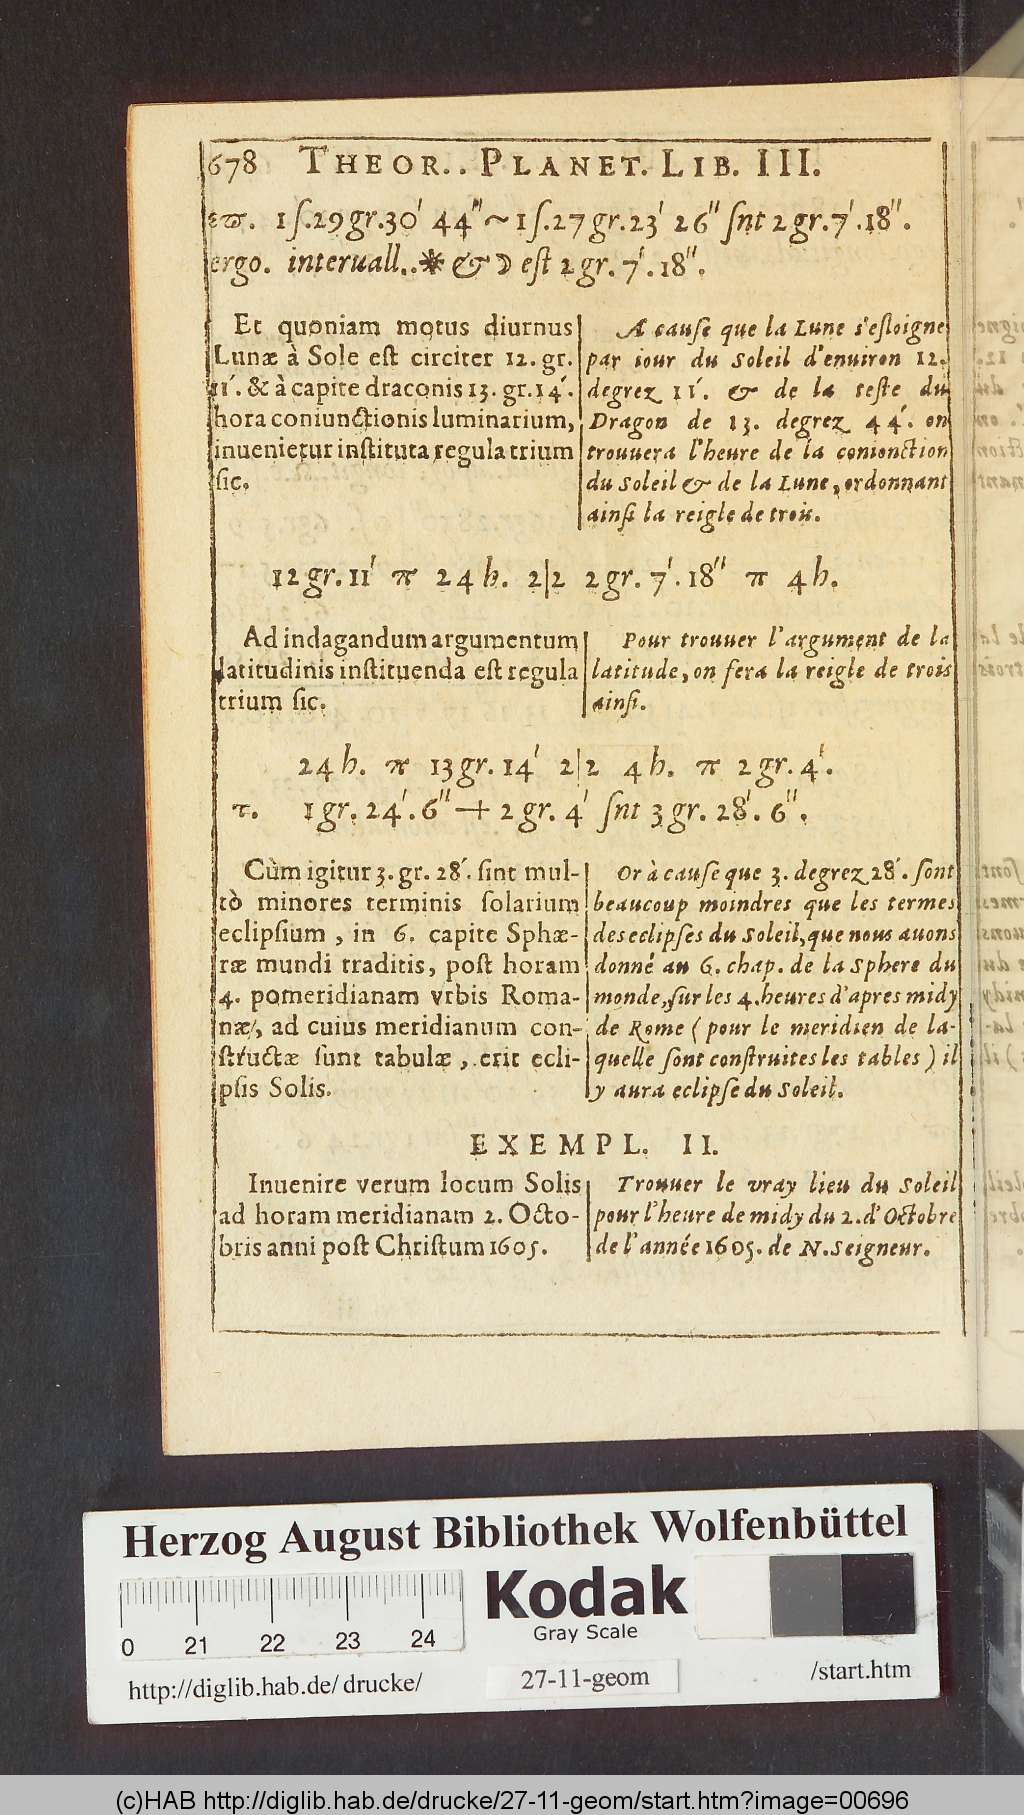 678 THEOR.. PLANET. LIB. III.
επ. 1ſ.29gr.30′ 44″ ~ 1ſ.27gr.23′ 26″ ſnt 2gr.7′.18″.
ergo. interuall..✷ & ☽ eſt 2gr.7′.18″.
Et quoniam motus diurnus
Lunæ à Sole eſt circiter 12. gr.
11′. & à capite draconis 13. gr. 14′.
hora coniunctionis luminarium,
inuenietur inſtituta regula trium
ſic.
A cauſe que la Lune s'eſloigne
par iour du Soleil d'enuiron 12.
degrez 11′. & de la teſte du
Dragon de 13. degrez 44′. on
trouuera l'heure de la conionction
du Soleil & de la Lune, ordonnant
ainſi la reigle de trois.
12gr.11′ π 24h. 2|2 2gr.7′.18″ π 4h.
Ad indagandum argumentum
latitudinis inſtituenda eſt regula
trium ſic.
Pour trouuer l'argument de la
latitude, on fera la reigle de trois
ainſi.
24h. π 13gr.14′ 2|2 4h. π 2gr.4′.
τ. 1gr.24′.6″ + 2gr.4′ ſnt 3gr.28′.6″.
Cùm igitur 3. gr. 28′. ſint mul-
tò minores terminis ſolarium
eclipſium, in 6. capite Sphæ-
ræ mundi traditis, poſt horam
4. pomeridianam vrbis Roma-
næ, ad cuius meridianum con-
ſtructæ ſunt tabulæ, erit ecli-
pſis Solis.
Or à cauſe que 3. degrez 28′. ſont
beaucoup moindres que les termes
des eclipſes du Soleil, que nous auons
donné au 6. chap. de la Sphere du
monde, ſur les 4. heures d'apres midy
de Rome (pour le meridien de la-
quelle ſont conſtruites les tables) il
y aura eclipſe du Soleil.
EXEMPL. II.
Inuenire verum locum Solis
ad horam meridianam 2. Octo-
bris anni poſt Chriſtum 1605.
Trouuer le vray lieu du Soleil
pour l'heure de midy du 2. d'Octobre
de l'année 1605. de N. Seigneur.
Herzog August Bibliothek Wolfenbüttel
Kodak
Gray Scale
0 21 22 23 24
http://diglib.hab.de/ drucke/ 27-11-geom /start.htm
(c)HAB http://diglib.hab.de/drucke/27-11-geom/start.htm?image=00696